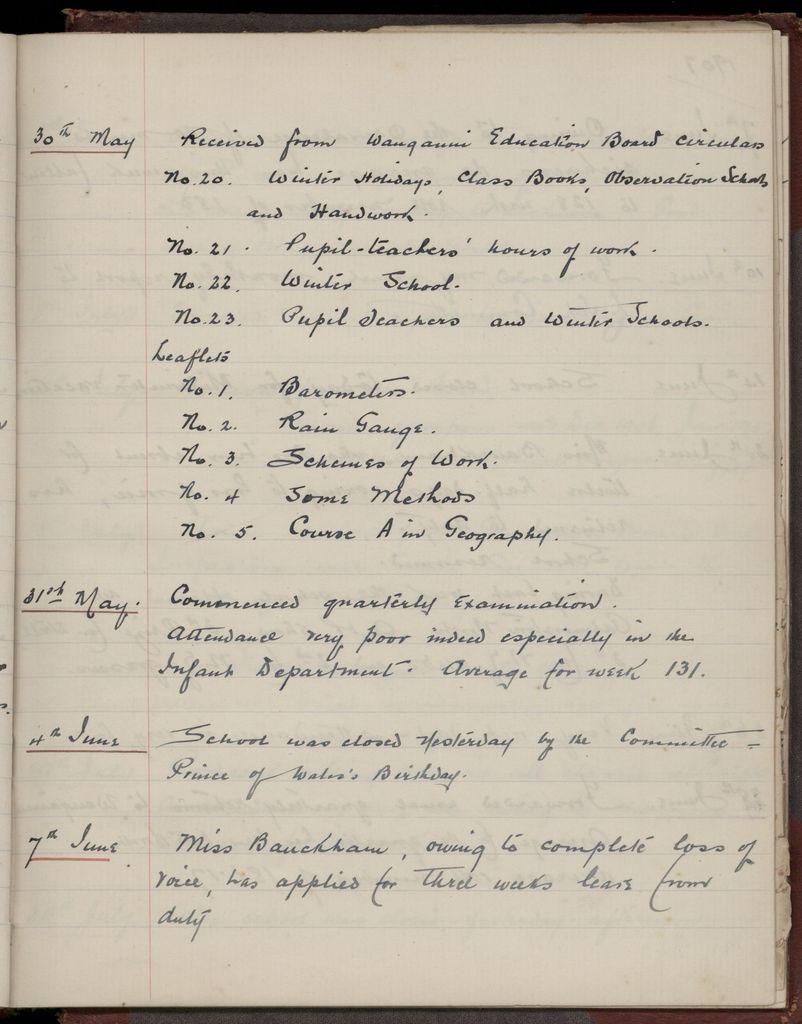 30th May Received from Wanganui Education Board circulars
No. 20. Winter Holidays, Class Books, Observation Schools
and Handwork.
No. 21. Pupil-teachers' hours of work.
No. 22. Winter School.
No. 23. Pupil Teachers and Winter Schools.
Leaflets
No. 1. Barometers.
No. 2. Rain Gauge.
No. 3. Schemes of Work.
No. 4 Some Methods
No. 5. Course A in Geography.
31st May. Commenced quarterly Examination.
Attendance very poor indeed especially in the
Infant Department. Average for week 131.
4th June School was closed yesterday by the Committee -
Prince of Wales's Birthday.
7th June Miss Bauckham, owing to complete loss of
voice, has applied for three weeks leave from
duty